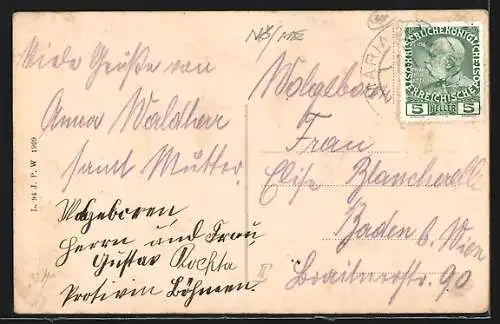 NÖ/ME
Viele Grüße von
Anna Waldherr
samt Mutter.
Wohlgeboren
Herrn und Frau
Gustav Rochta
Protivin Böhmen.
L. 94 J. P. W. 1909
MARIA
KAISERLICHE KÖNIGLICHE
ÖSTERREICHISCHE
5 HELLER 5
Wohlgeboren
Frau
Elise
Baden b. Wien
90
II